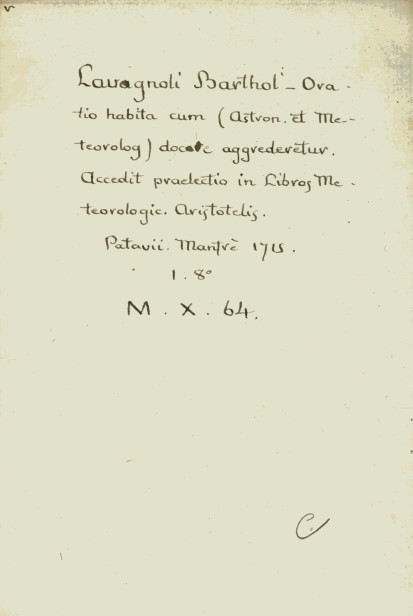 Lavagnoli Barthol¹ - Ora-
tio habita cum (Astron. et Me-
teorolog) docere aggrederetur.
Accedit praelectio in Libros Me-
teorologic. Aristotelis.
Patavii. Manfrè 1715.
1. 8°
M. X. 64.
C.